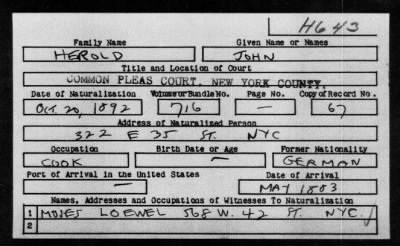 H643
Family Name Given Name or Names
HEROLD JOHN
Title and Location of Court
COMMON PLEAS COURT, NEW YORK COUNTY.
Date of Naturalization Volume or Bundle No. Page No. Copy of Record No.
OCT. 20, 1892 716 — 67
Address of Naturalized Person
322 E 35 ST. NYC
Occupation Birth Date or Age Former Nationality
COOK — GERMAN
Port of Arrival in the United States Date of Arrival
— MAY 1883
Names, Addresses and Occupations of Witnesses To Naturalization
1 MOSES LOEWEL 568 W. 42 ST. NYC.
2